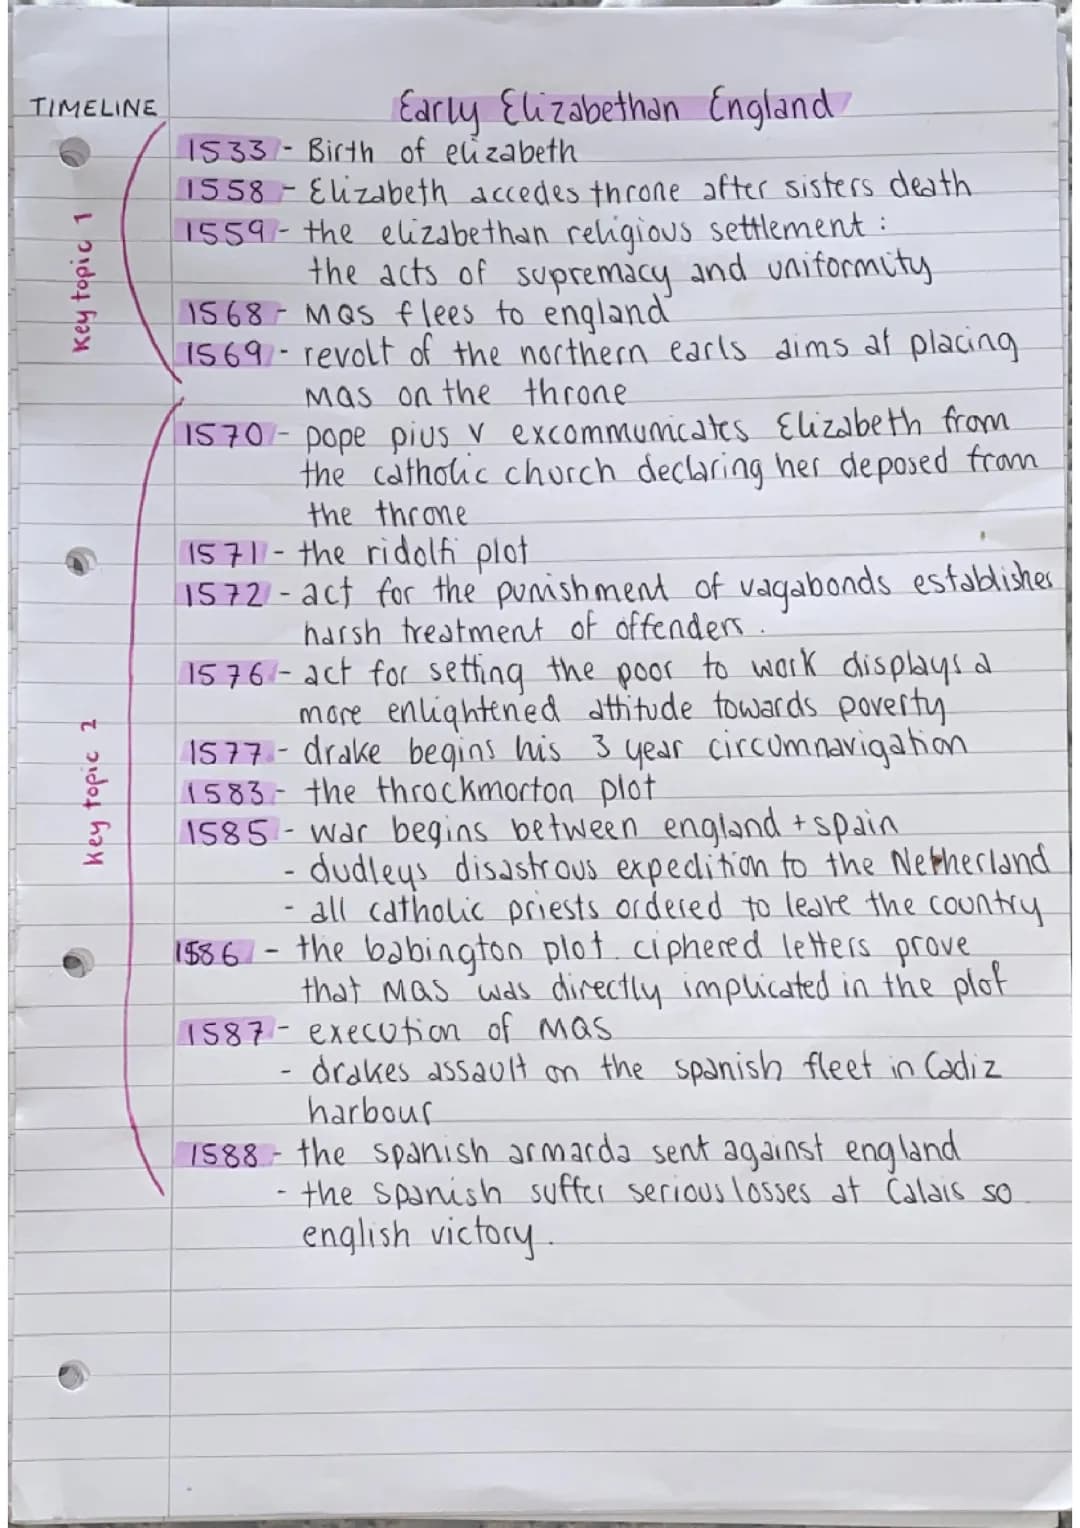 TIMELINE
Early Elizabethan England
Key topic 1
1533 - Birth of elizabeth
1558 - Elizabeth accedes throne after sisters death
1559 - the elizabethan religious settlement :
the acts of supremacy and uniformity
1568 - MQS flees to england
1569 - revolt of the northern earls aims at placing
MQS on the throne
Key topic 2
1570 - pope pius V excommunicates Elizabeth from
the catholic church declaring her deposed from
the throne
1571 - the ridolfi plot
1572 - act for the punishment of vagabonds establishes
harsh treatment of offenders.
1576 - act for setting the poor to work displays a
more enlightened attitude towards poverty
1577 - drake begins his 3 year circumnavigation
1583 - the throckmorton plot
1585 - war begins between england + spain
- dudleys disastrous expedition to the Netherland
- all catholic priests ordered to leave the country
1586 - the babington plot. ciphered letters prove
that MQS was directly implicated in the plot
1587 - execution of MQS
- drakes assault on the spanish fleet in Cadiz
harbour
1588 - the spanish armarda sent against england
- the spanish suffer serious losses at Calais so
english victory.